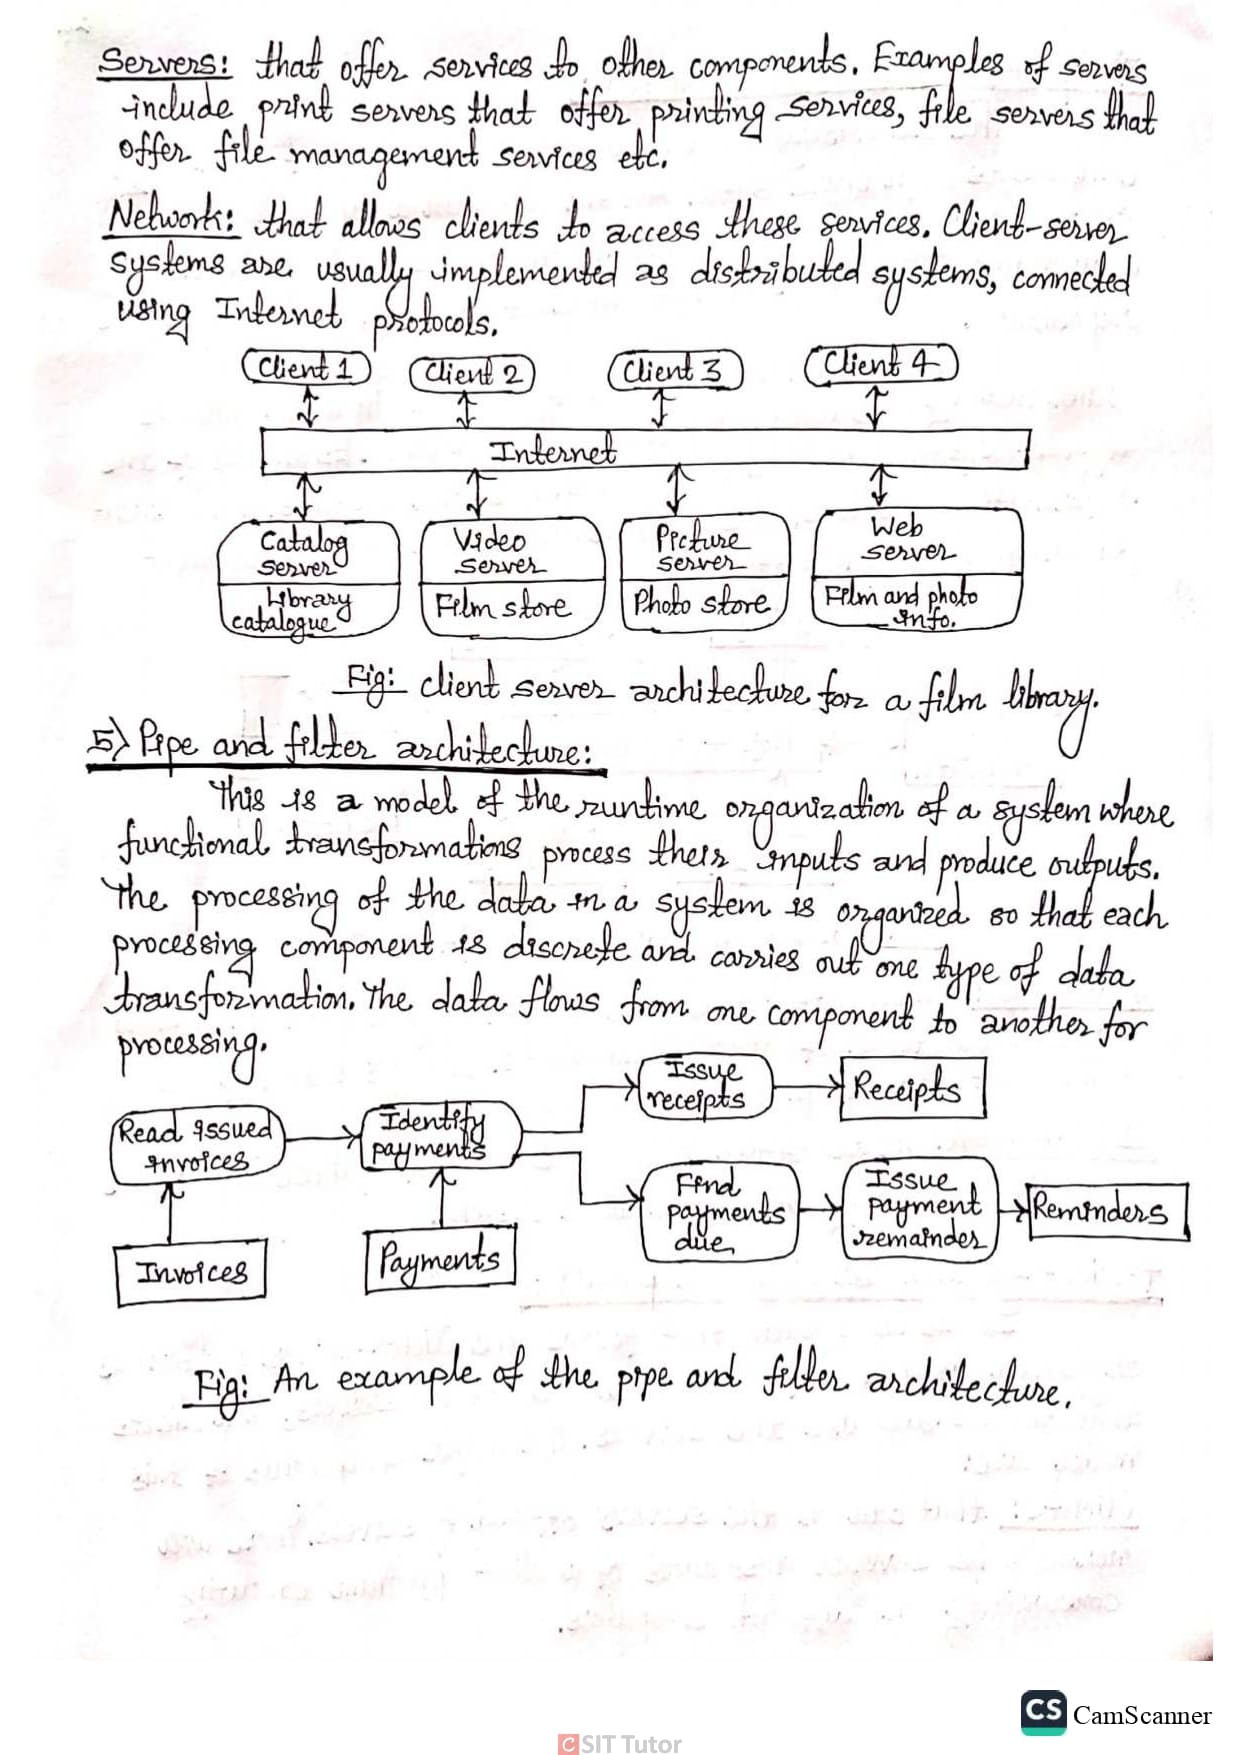 Servers: that offer services to other components. Examples of servers
include print servers that offer printing services, file servers that
offer file management services etc.
Network: that allows clients to access these services. Client-server
systems are usually implemented as distributed systems, connected
using Internet protocols.
Client 1 Client 2 Client 3 Client 4
Internet
Catalog
server
Library
catalogue
Video
server
Film store
Picture
server
Photo store
Web
server
Film and photo
info.
Fig: client server architecture for a film library.
5) Pipe and filter architecture:
This is a model of the runtime organization of a system where
functional transformations process their inputs and produce outputs.
The processing of the data in a system is organized so that each
processing component is discrete and carries out one type of data
transformation. The data flows from one component to another for
processing.
Read issued
invoices
Invoices
Identify
payments
Payments
Issue
receipts
Receipts
Find
payments
due
Issue
payment
remainder
Reminders
Fig: An example of the pipe and filter architecture.
CS CamScanner
CSIT Tutor